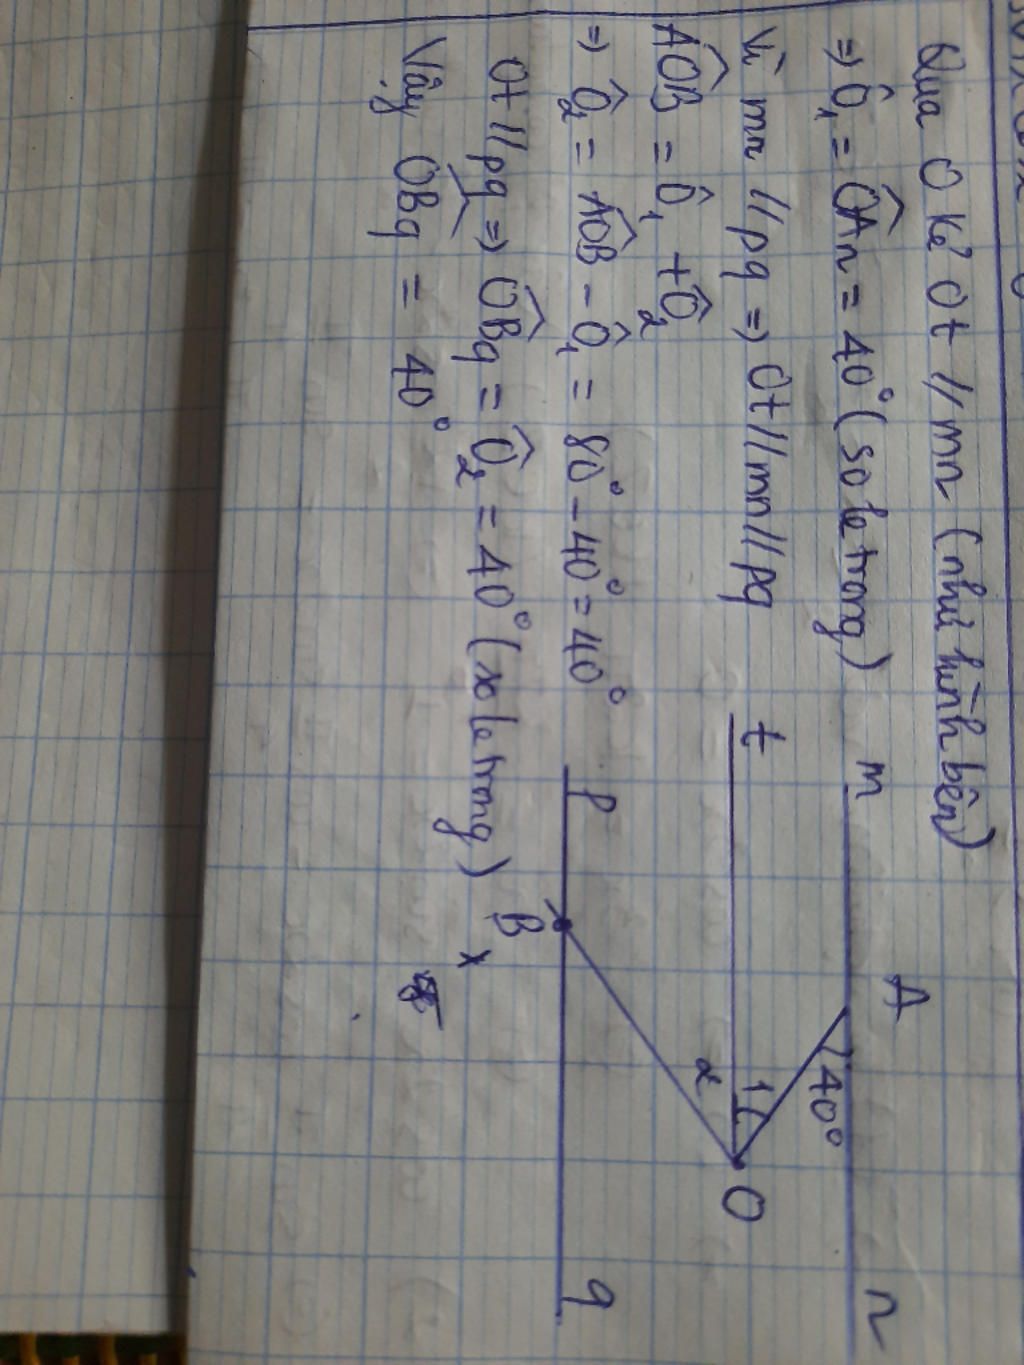 Qua O kẻ Ot // mn (như hình bên)
⇒ Ô₁ = OÂn = 40° (so le trong)
Vì mn // pq ⇒ Ot // mn // pq
AÔB = Ô₁ + Ô₂
⇒ Ô₂ = AÔB - Ô₁ = 80° - 40° = 40°
Ot // pq ⇒ OB̂q = Ô₂ = 40° (so le trong)
Vậy OB̂q = 40°
m A n
40°
t 1 O
2
p q
B x